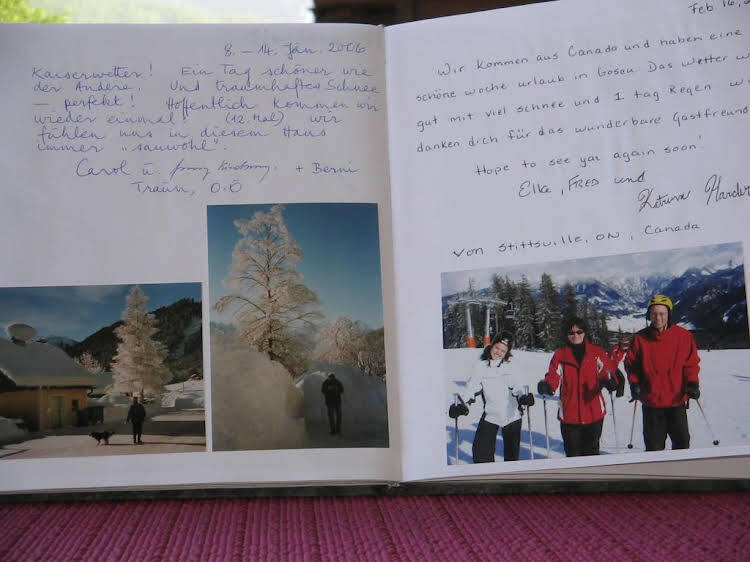 8. – 14. Jän. 2006
Kaiserwetter! Ein Tag schöner wie
der Andere. Und traumhaftes Schnee
– perfekt! Hoffentlich kommen wir
wieder einmal! (12. Mal) wir
fühlen uns in diesem Haus
immer "sauwohl".
Carol u. + Berni
Traun, O.Ö
Feb. 16, 2
Wir kommen aus Canada und haben eine
schöne woche urlaub in Gosau. Das Wetter w
gut mit viel schnee und 1 tag Regen wi
danken dich für das wunderbare Gastfreund
Hope to see you again soon!
Elka, FRED und
Katrina Harder
von Stittsville, ON, Canada